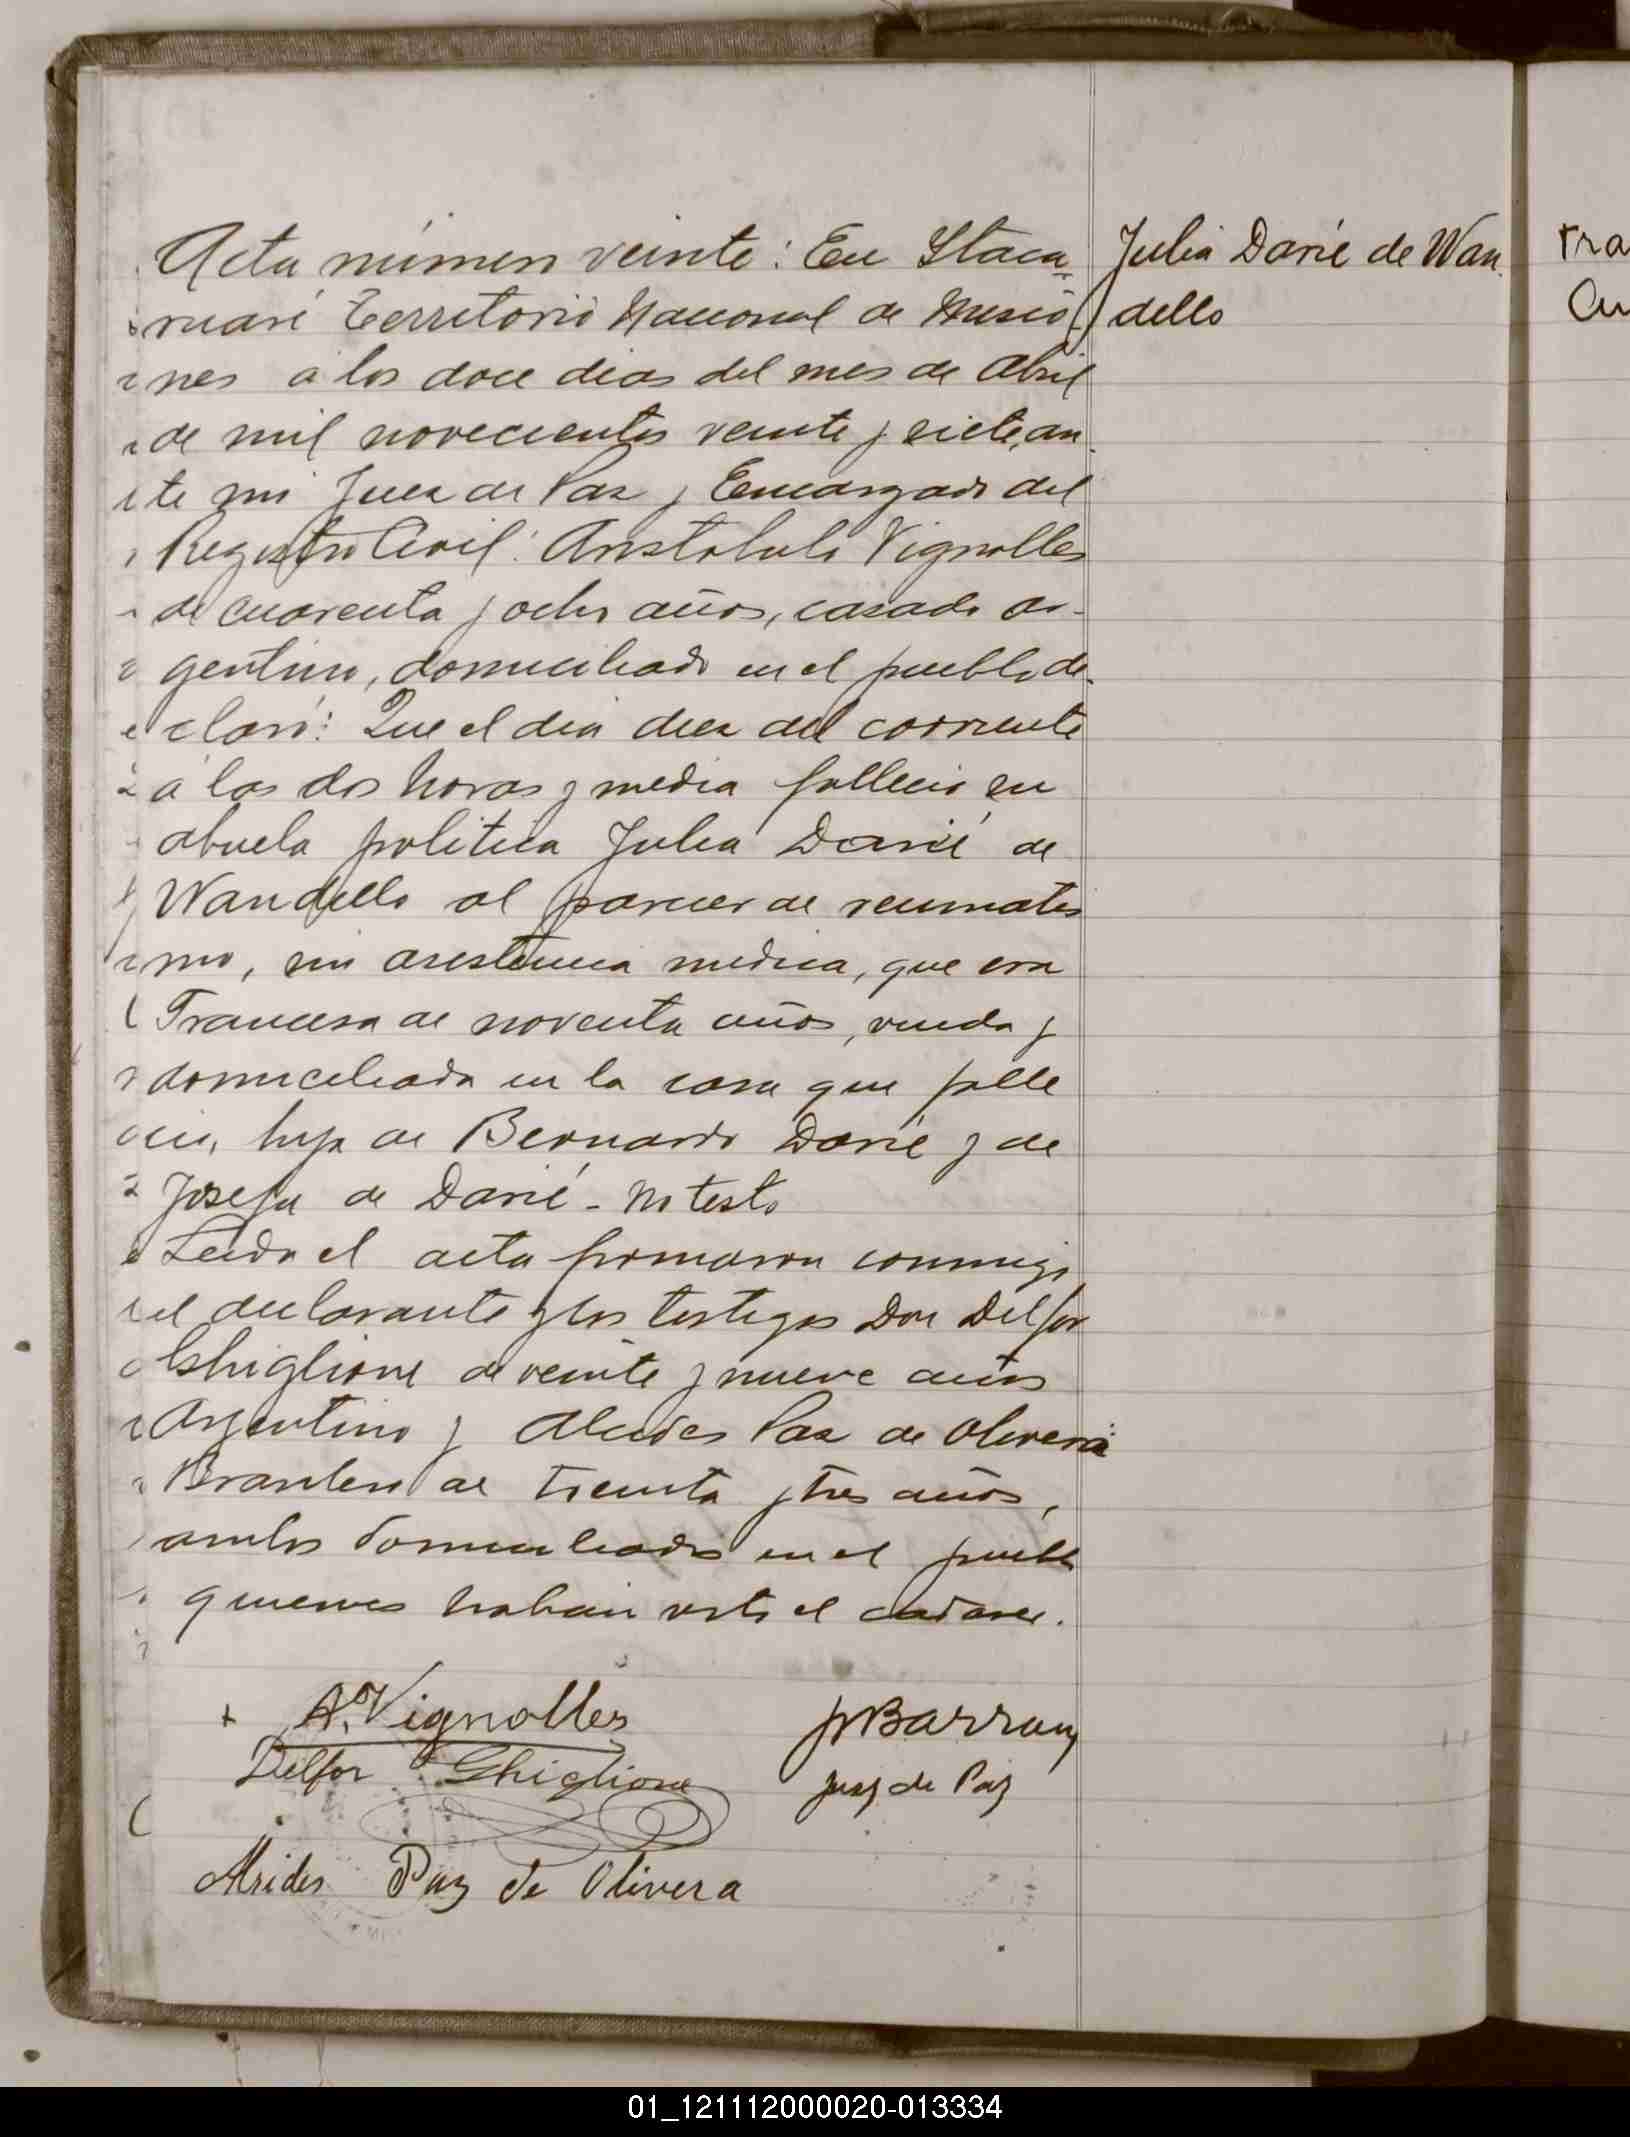 Acta número veinte: En Itaca-
ruaré Territorio Nacional de Misio-
nes a los doce dias del mes de Abril
de mil novecientos veinte y siete, an-
te mi Juez de Paz y Encargado del
Registro Civil: Aristobulo Vignolles
de cuarenta y ocho años, casado ar-
gentino, domiciliado en el pueblo de-
claró: Que el dia diez del corriente
á las dos horas y media fallecio su
abuela politica Julia Darié de
Wandello al parecer de reumatis
mo, sin asistencia medica, que era
Francesa de noventa años, viuda y
domiciliada en la casa que falle
cio, hija de Bernardo Darié y de
Josefa de Darié - No testo
Leida el acta firmaron conmigo
el declarante y los testigos Don Delfor
Ghiglione de veinte y nueve años
Argentino y Alcides Paz de Olivera
Brasilero de treinta y tres años,
ambos domiciliados en el pueblo
quienes habian visto el cadaver.
Julia Darié de Wan-
dello
A. Vignolles
Delfor Ghiglione
Alcides Paz de Olivera
Juez de Paz
tra
01_121112000020-013334